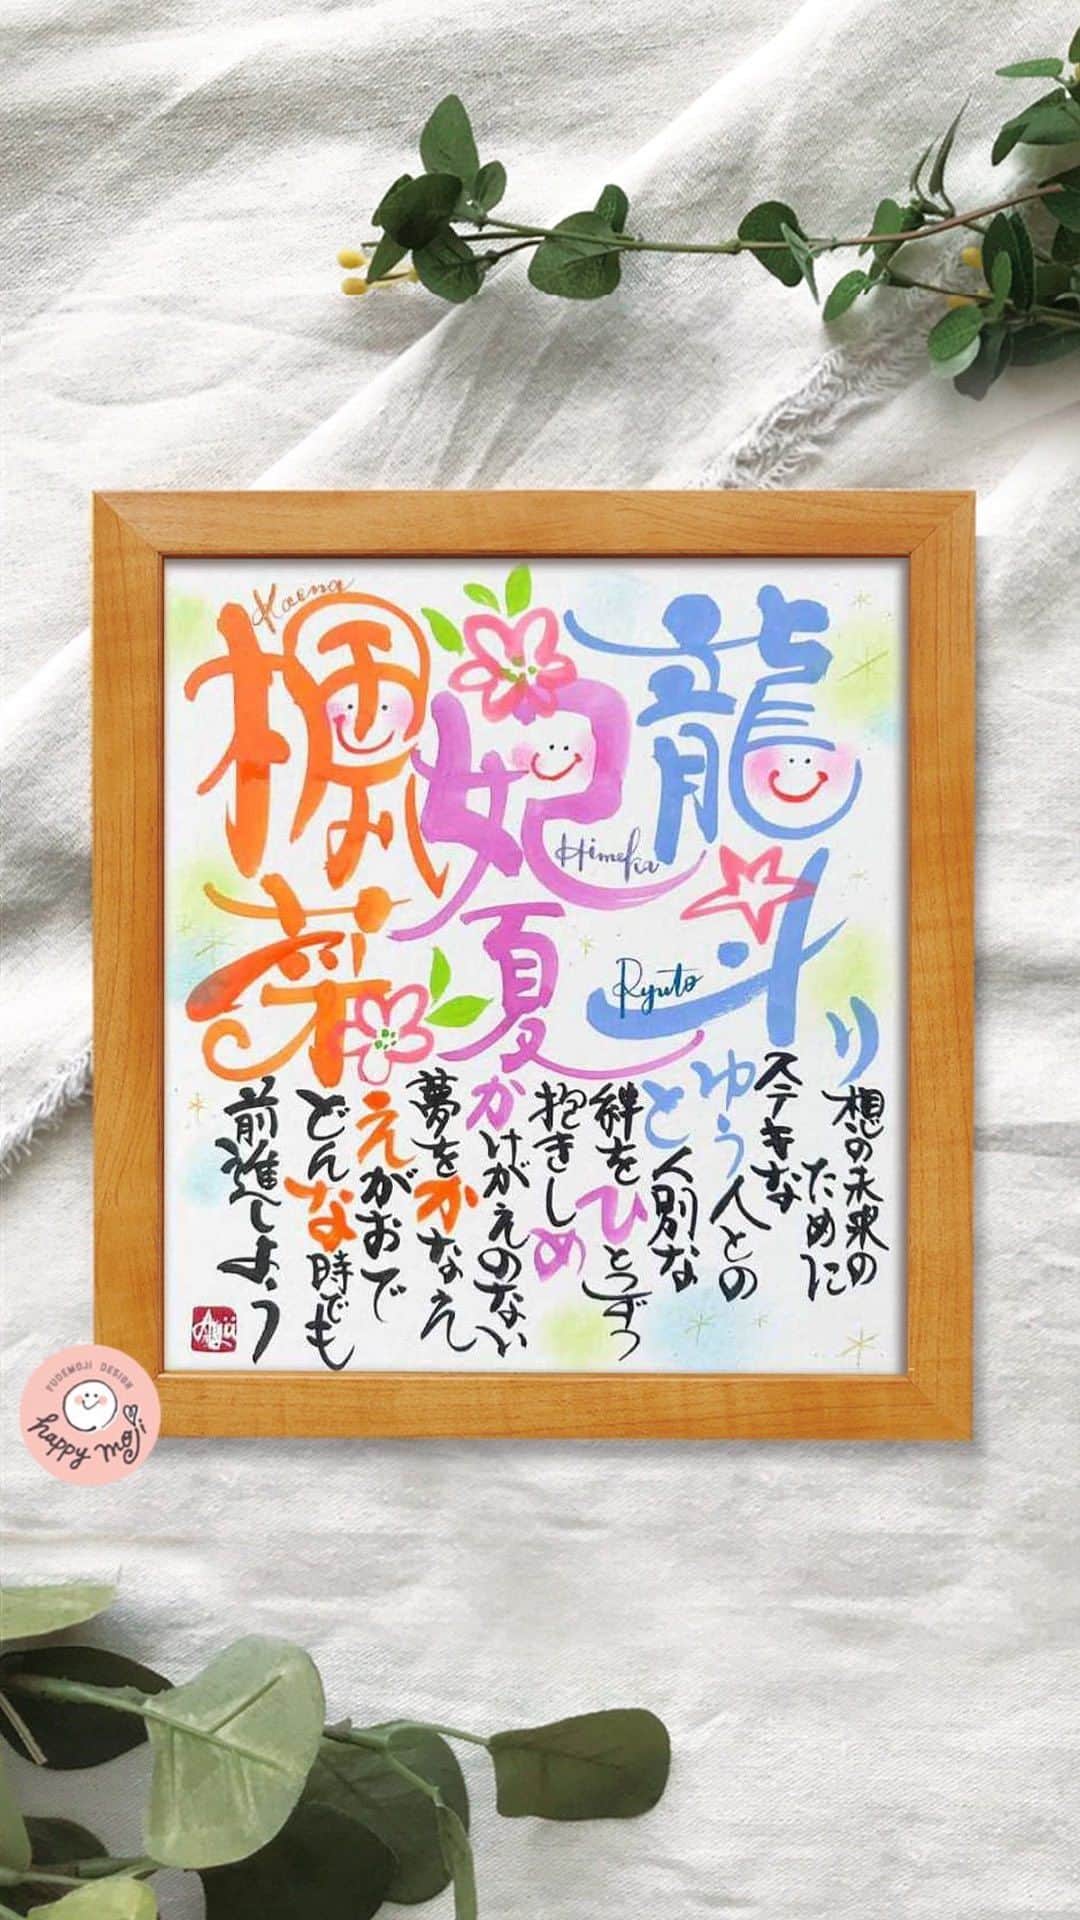 龍斗
Ryuto
妃夏
Himeka
楓菜
Kaena
り想の未来の
ために
ステキな
ゆう人との
とく別な
絆をひとつずつ
抱きしめ
かけがえのない
夢をかなえ
えがおで
どんな時でも
前進しよう
FUDEMOJI DESIGN
happy moji